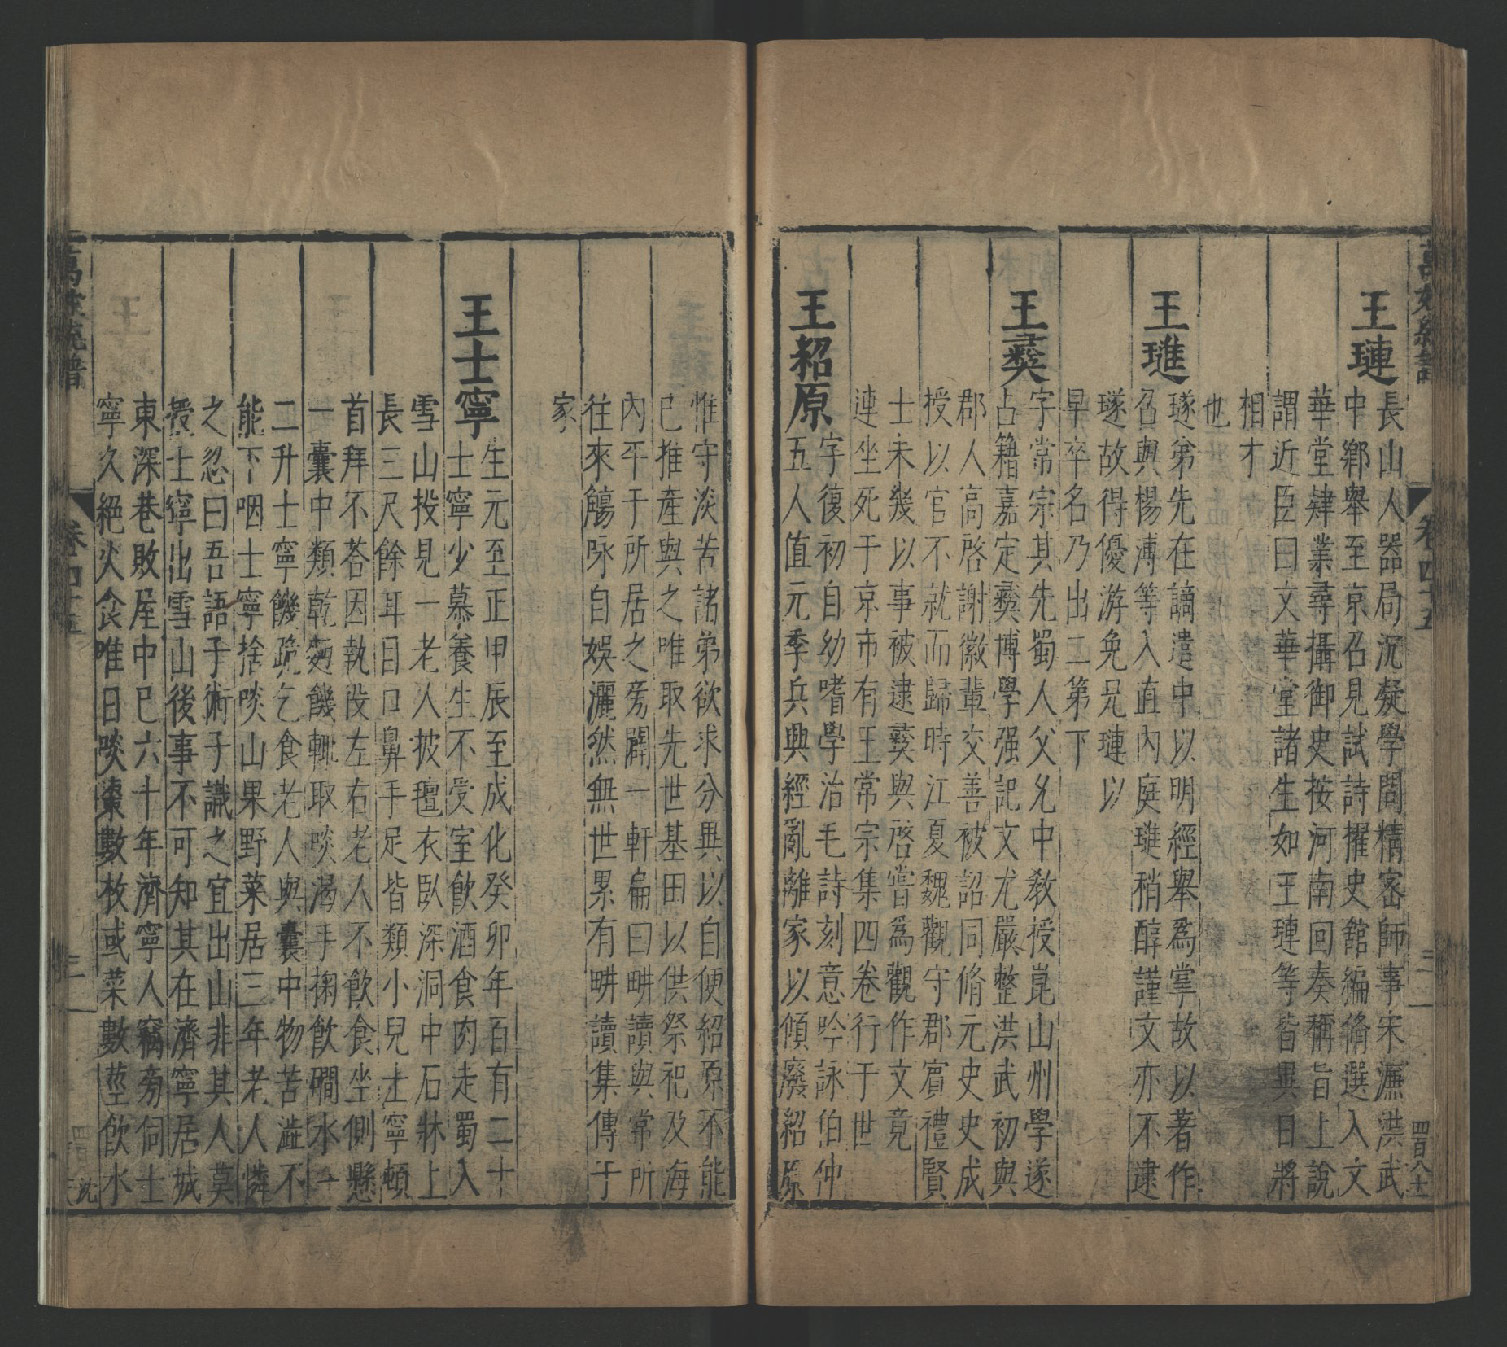 王璉
長山人器局沉凝學問精密師事宋濂洪武
中鄉舉至京召見試詩擢史館編脩選入文
華堂肄業尋攝御史按河南回奏稱旨上說
謂近臣曰文華堂諸生如王璉等皆異日將
相才
也
王璡
璲弟先在謫遣中以明經舉爲掌故以著作
召與楊溥等入直內庭璡稍醇謹文亦不逮
璲故得優游免兄璉以
早卒名乃出二第下
王彝
字常宗其先蜀人父允中教授崑山州學遂
占籍嘉定彝博學强記文尤嚴整洪武初與
郡人高啓謝徽輩交善被詔同脩元史史成
授以官不就而歸時江夏魏觀守郡賓禮賢
士未幾以事被逮彝與啓嘗爲觀作文竟
連坐死于京市有王常宗集四卷行于世
王紹原
字復初自幼嗜學治毛詩刻意吟詠伯仲
五人值元季兵興經亂離家以傾廢紹原
惟守淡苦諸弟欲求分異以自便紹原不能
已推產與之唯取先世基田以供祭祀及海
內平于所居之旁闢一軒扁曰畊讀與常所
徃來觴咏自娛灑然無世累有畊讀集傳于
家
王士寧
生元至正甲辰至成化癸卯年百有二十
士寧少慕養生不受室飮酒食肉走蜀入
雪山投見一老人披氊衣臥深洞中石牀上
長三尺餘耳目口鼻手足皆類小兒士寧頓
首拜不荅因執役左右老人不飮食坐側懸
一囊中類乾麵饑輙取啖渴手掬飮磵水一
二升士寧饑䟽乞食老人與囊中物苦澁不
能下咽士寧捨啖山果野菜居三年老人憐
之忽曰吾語子術子識之宜出山非其人莫
授士寧出雪山後事不可知其在濟寧居城
東深巷敗屋中巳六十年濟寧人竊旁伺士
寧久絕火食唯日啖棗數枚或菜數莖飮水
萬姓統譜
卷四十五